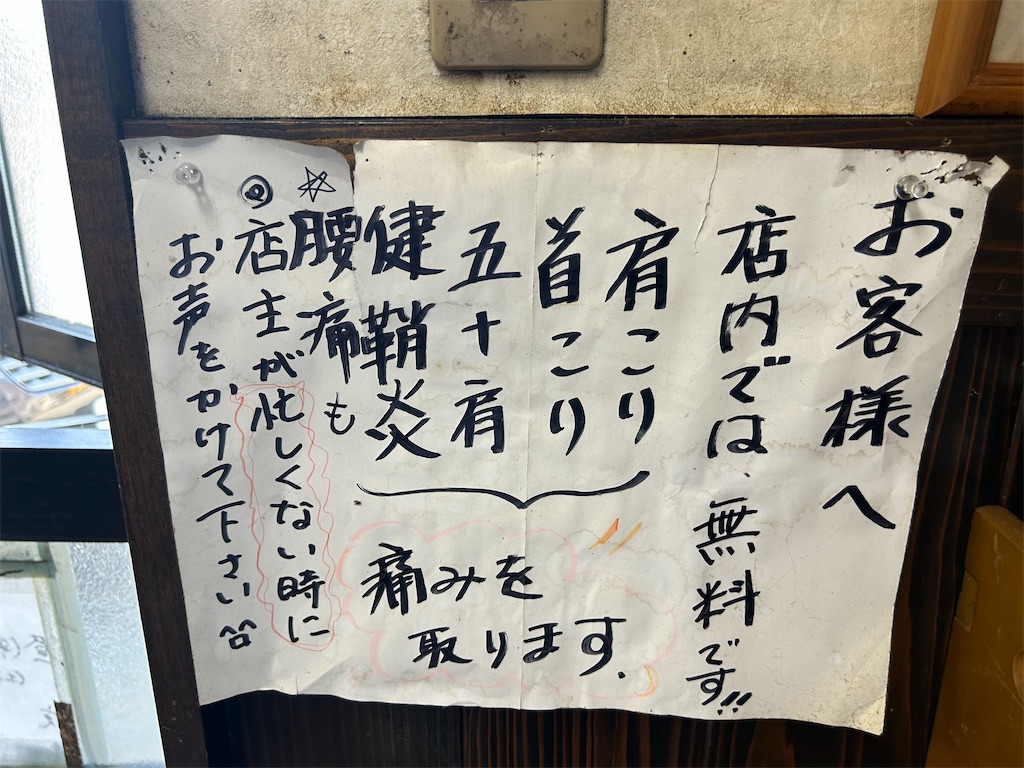 お客様へ
店内では、無料です!!
肩こり
首こり
五十肩
健鞘炎
痛みを
取ります.
☆腰痛も
◎店主が忙しくない時に
お声をかけて下さい